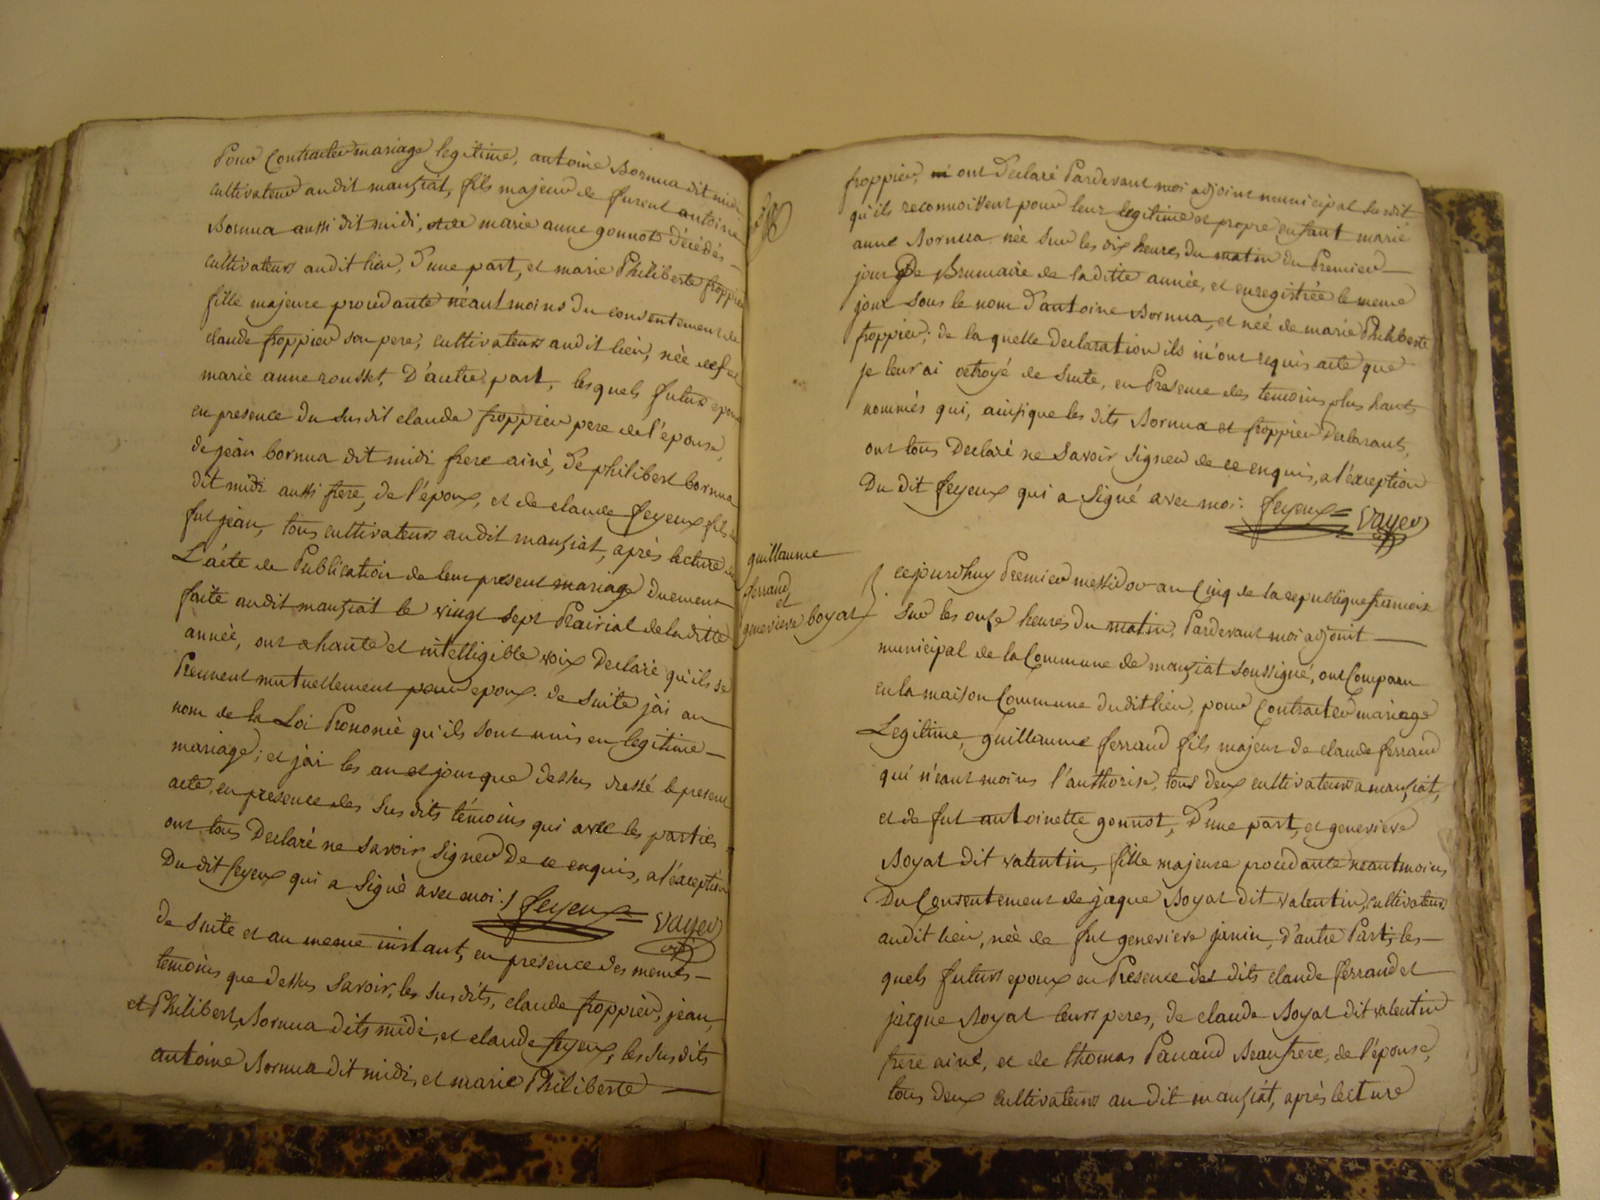 Pour Contracter mariage legitime, antoine Bornua dit midi
cultivateur audit manziat, fils majeur de furent antoine
Bornua aussi dit midi, et de marie anne gonnot décédés
cultivateurs audit lieu, d'une part, et marie Philiberte froppier
fille majeure procedante néantmoins du consentement de
claude froppier son pere, cultivateurs audit lieu, née de fut
marie anne rousset, D'autre part, lesquels futurs epoux
en presence du susdit claude froppier pere de l'épouse,
de jean bornua dit midi frere ainé, de philibert bornua
dit midi aussi frere, de l'époux, et de claude feyeux fils de
fut jean, tous cultivateurs audit manziat, après lecture de
L'acte de Publication de leur present mariage Duement
faite audit manziat le vingt sept Prairial de laditte
année, ont a haute et intelligible voix Declaré qu'ils se
Prennent mutuellement pour epoux. de suite j'ai au
nom de la Loi Prononcé qu'ils sont unis en legitime
mariage; et j'ai les an et jour que dessus dressé le present
acte, en presence des susdits témoins qui avec les parties
ont tous Declaré ne savoir signer De ce enquis, a l'exception
Du dit feyeux qui a signé avec moi ./ feyeux vayer
adj
de suite et au meme instant, en presence des memes
temoins que dessus savoir, les susdits, claude froppier, jean,
et Philibert Bornua dits midi, et claude feyeux, les susdits
antoine Bornua dit midi, et marie Philiberte
froppier, m'ont Declaré Pardevant moi adjoint municipal susdit
qu'ils reconnoissent pour leur legitime et propre enfant marie
anne Bornua née sur les dix heures du matin du Premier
jour De Brumaire de laditte année, et enregistrée le meme
jour sous le nom d'antoine Bornua, et née de marie Philiberte
froppier; de la quelle declaration ils m'ont requis acte que
je leur ai octroyé de suite, en Presence des temoins plus hauts
nommés qui, ainsi que les dits Bornua et froppier Declarants,
ont tous Declaré ne savoir signer de ce enquis, a l'exception
Du dit feyeux qui a signé avec moi . feyeux vayer
guillaume
ferrand
et
genevieve boyat
cejourd'huy Premier messidor an Cinq de la republique francoise
sur les onze heures du matin, Pardevant moi adjoint
municipal de la Commune de manziat soussigné, ont Comparu
en la maison Commune dudit lieu, pour Contracter mariage
Legitime, guillaume ferrand fils majeur de claude ferrand
qui n'eant moins l'authorise, tous deux cultivateurs a manziat,
et de fut antoinette gonnot, D'une part, et genevieve
Boyat dit valentin, fille majeure procedante neantmoins
Du Consentement de jaque Boyat dit valentin, cultivateurs
audit lieu, née de fut genevieve janin, d'autre Part, les
quels futurs epoux en Presence des dits claude ferrand et
jacque Boyat leurs peres, de claude Boyat dit valentin
frere ainé, et de thomas Panand Beaufrere, de l'épouse,
tous deux cultivateurs au dit manziat, après lecture